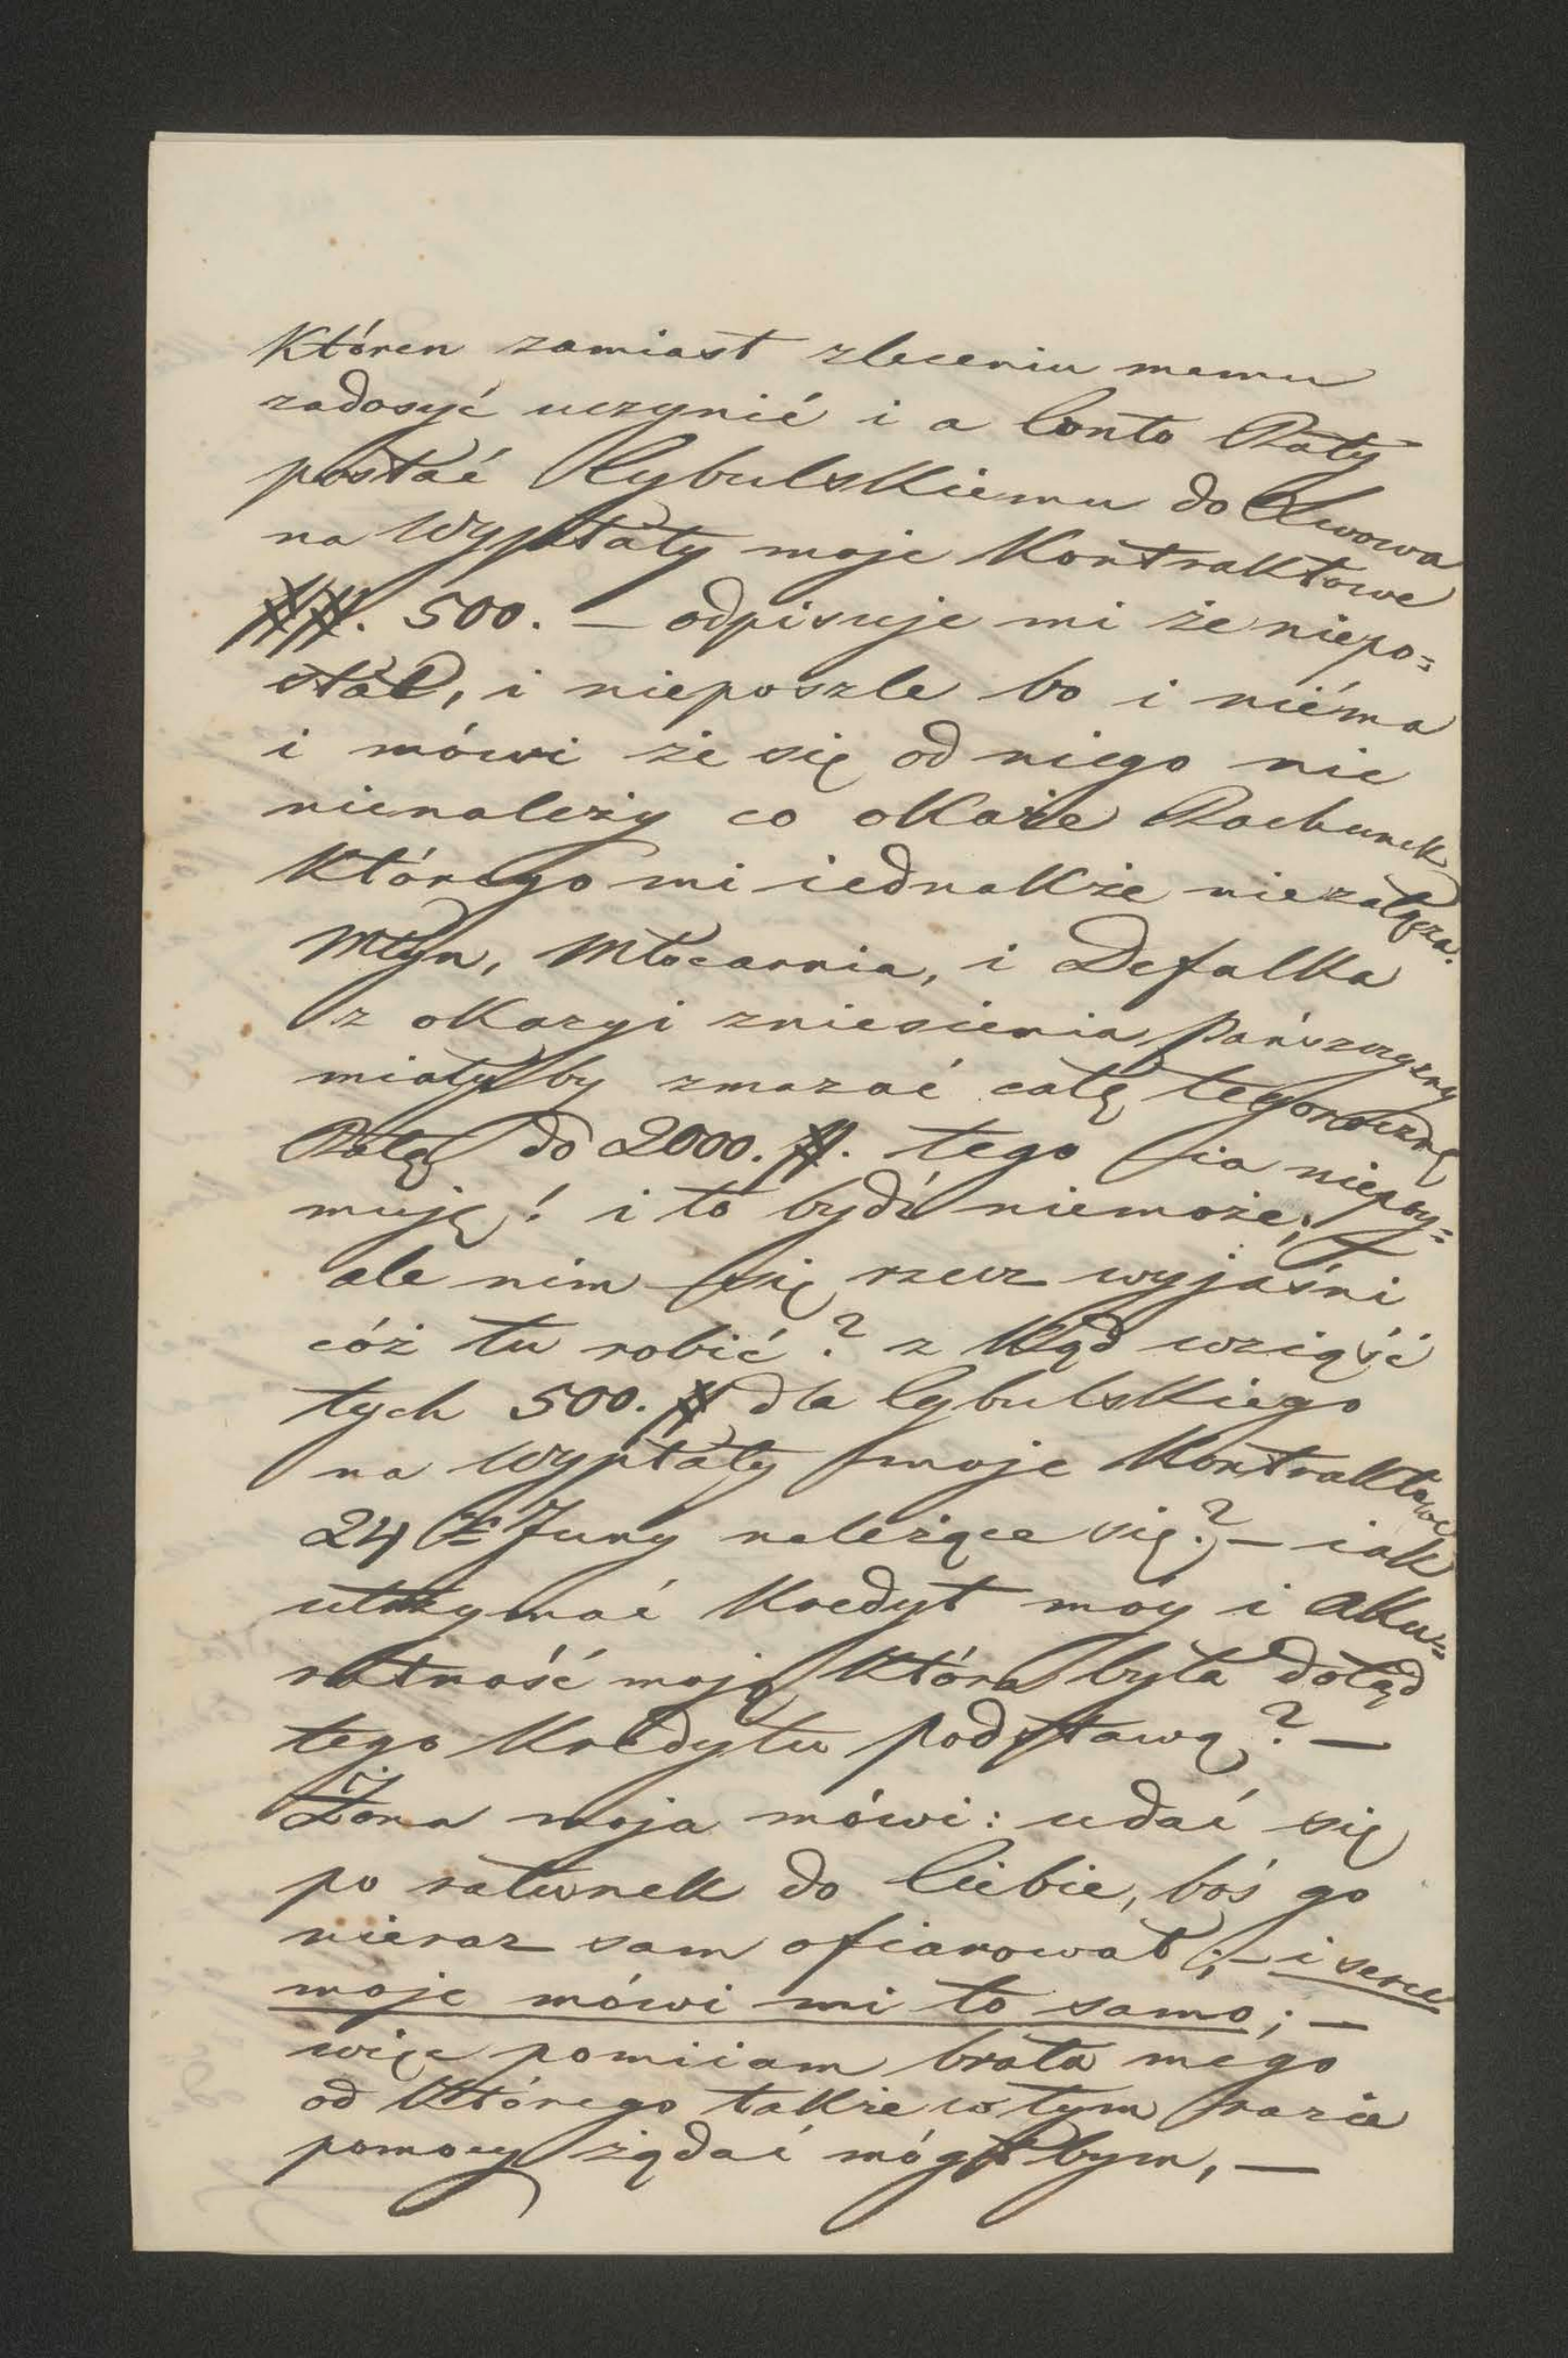 Któren zamiast zleceniu memu
zadosyć uczynić i a Conto Raty
postać Cybulskiemu do Lwowa
na Wypłaty moje Kontraktowe
##. 500. — odpisuje mi że niepo=
słał, i nieposzle bo i niéma
i mówi że się od niego nic
nienależy co okaże Rachunek
Którego mi iednakże niezałącza.
Młyn, Młocarnia, i Defalka
z okazyi zniesienia Pańszczyzny
miały by zmazać całę tegoroczną
Ratę do 2000. #. tego ia niepoy=
muję! i to bydź niemoże; —
ale nim się rzecz wyjaśni
cóż tu robić? z kąd wziąść
tych 500. # dla Cybulskiego
na Wypłaty moje Kontraktowe
24 Juny należące się? — iak
utrzymać Kredyt móy i aku=
ratność moją która była dotąd
tego Kredytu podstawą? —
Żona moja mówi: udać się
po ratunek do Ciebie, boś go
nieraz sam ofiarował; — i serce
moje mówi mi to samo; —
więc pomiiam brata mego
od Którego także w tym razie
pomocy żądać mógłbym, —